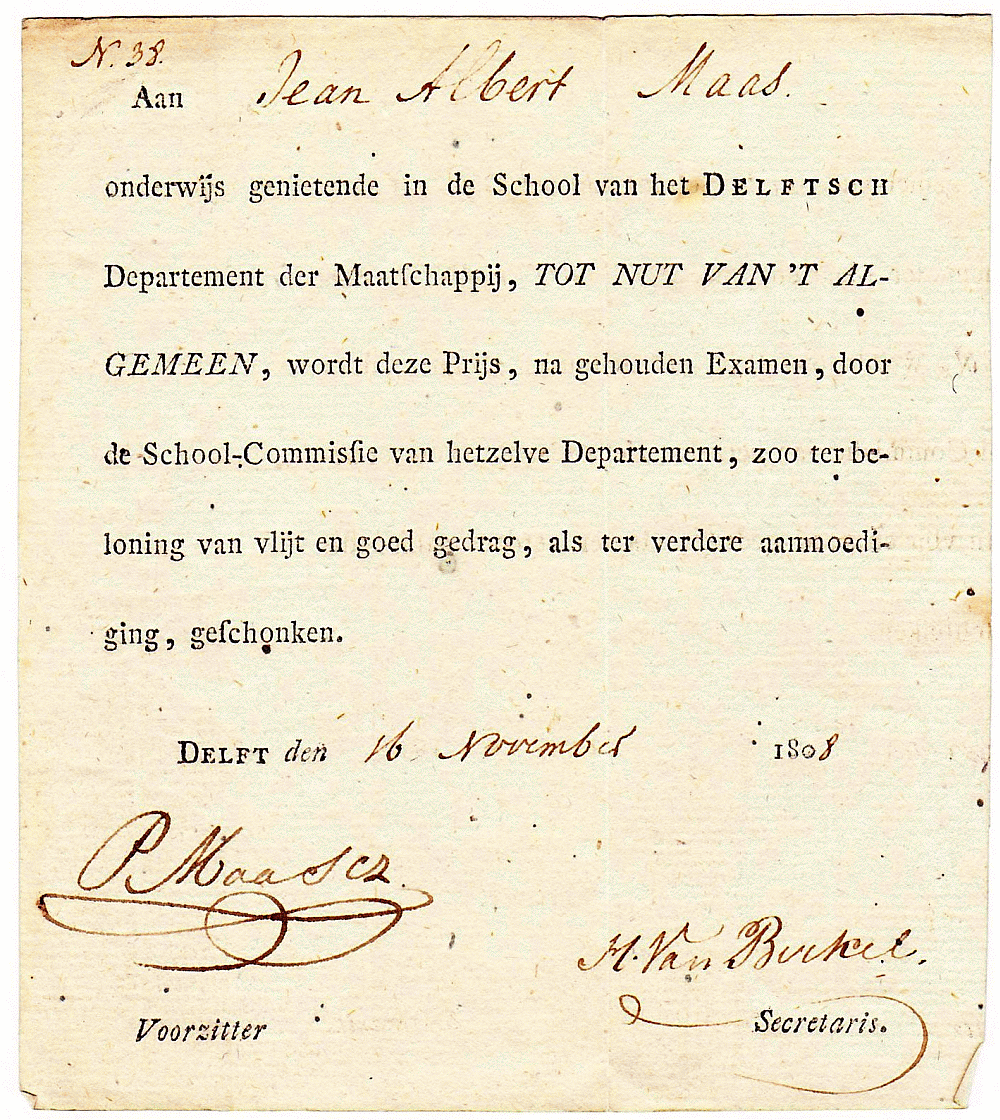 N. 38.
Aan Jean Albert Maas.
onderwijs genietende in de School van het DELFTSCH
Departement der Maatſchappij, TOT NUT VAN 'T AL-
GEMEEN, wordt deze Prijs, na gehouden Examen, door
de School-Commisſie van hetzelve Departement, zoo ter be-
loning van vlijt en goed gedrag, als ter verdere aanmoedi-
ging, geſchonken.
DELFT den 16 November 1808
P. Maas Cz.
H. Van Berkel.
Voorzitter
Secretaris.